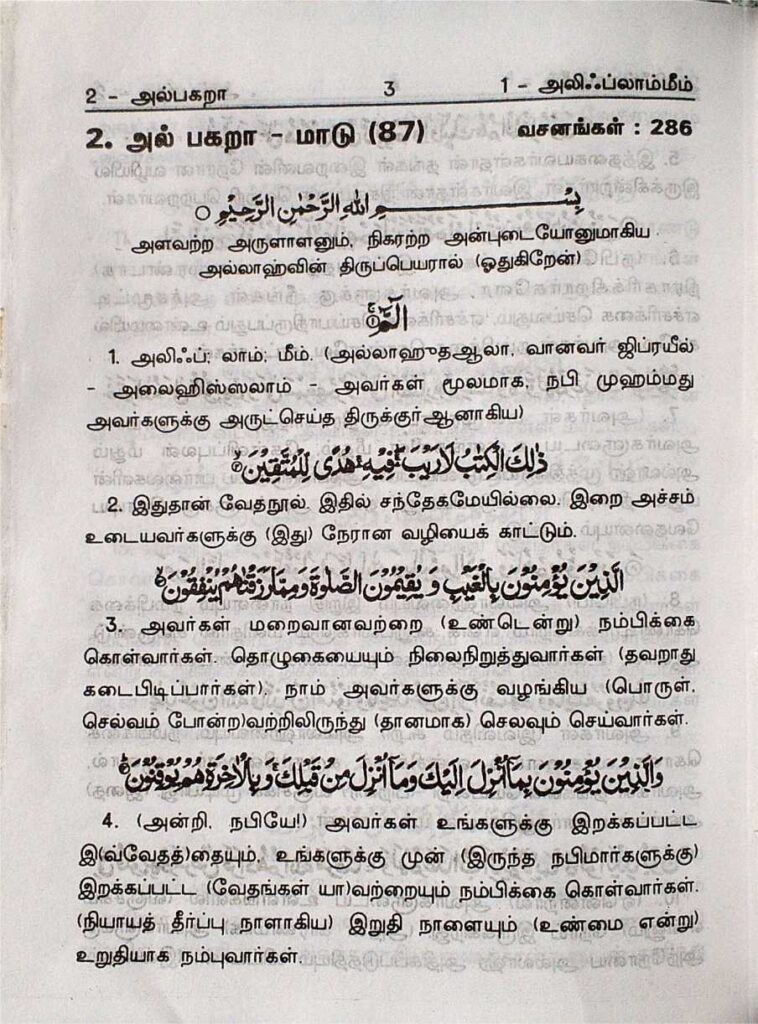 2 - அல்பகறா 3 1 - அலிஃப்லாம்மீம்
2. அல் பகறா - மாடு (87) வசனங்கள் : 286
بِسْــــــمِ اللهِ الرَّحْمٰنِ الرَّحِيْمِ ○
அளவற்ற அருளாளனும், நிகரற்ற அன்புடையோனுமாகிய
அல்லாஹ்வின் திருப்பெயரால் (ஓதுகிறேன்)
الٓمّٓ ۚ
1. அலிஃப்; லாம்; மீம். (அல்லாஹுதஆலா, வானவர் ஜிப்ரயீல்
- அலைஹிஸ்ஸலாம் - அவர்கள் மூலமாக, நபி முஹம்மது
அவர்களுக்கு அருட்செய்த திருக்குர்ஆனாகிய)
ذٰلِكَ الْكِتٰبُ لَا رَيْبَ ۛ فِيْهِ ۛ هُدًى لِّلْمُتَّقِيْنَ ۙ
2. இதுதான் வேதநூல். இதில் சந்தேகமேயில்லை. இறை அச்சம்
உடையவர்களுக்கு (இது) நேரான வழியைக் காட்டும்.
الَّذِيْنَ يُؤْمِنُوْنَ بِالْغَيْبِ وَ يُقِيْمُوْنَ الصَّلٰوةَ وَمِمَّا رَزَقْنٰهُمْ يُنْفِقُوْنَ ۙ
3. அவர்கள் மறைவானவற்றை (உண்டென்று) நம்பிக்கை
கொள்வார்கள். தொழுகையையும் நிலைநிறுத்துவார்கள் (தவறாது
கடைபிடிப்பார்கள்). நாம் அவர்களுக்கு வழங்கிய (பொருள்,
செல்வம் போன்ற)வற்றிலிருந்து (தானமாக) செலவும் செய்வார்கள்.
وَالَّذِيْنَ يُؤْمِنُوْنَ بِمَآ اُنْزِلَ اِلَيْكَ وَمَآ اُنْزِلَ مِنْ قَبْلِكَ ۚ وَبِالْاٰخِرَةِ هُمْ يُوْقِنُوْنَ ؕ
4. (அன்றி, நபியே!) அவர்கள் உங்களுக்கு இறக்கப்பட்ட
இ(வ்வேதத்)தையும், உங்களுக்கு முன் (இருந்த நபிமார்களுக்கு)
இறக்கப்பட்ட (வேதங்கள் யா)வற்றையும் நம்பிக்கை கொள்வார்கள்.
(நியாயத் தீர்ப்பு நாளாகிய) இறுதி நாளையும் (உண்மை என்று)
உறுதியாக நம்புவார்கள்.